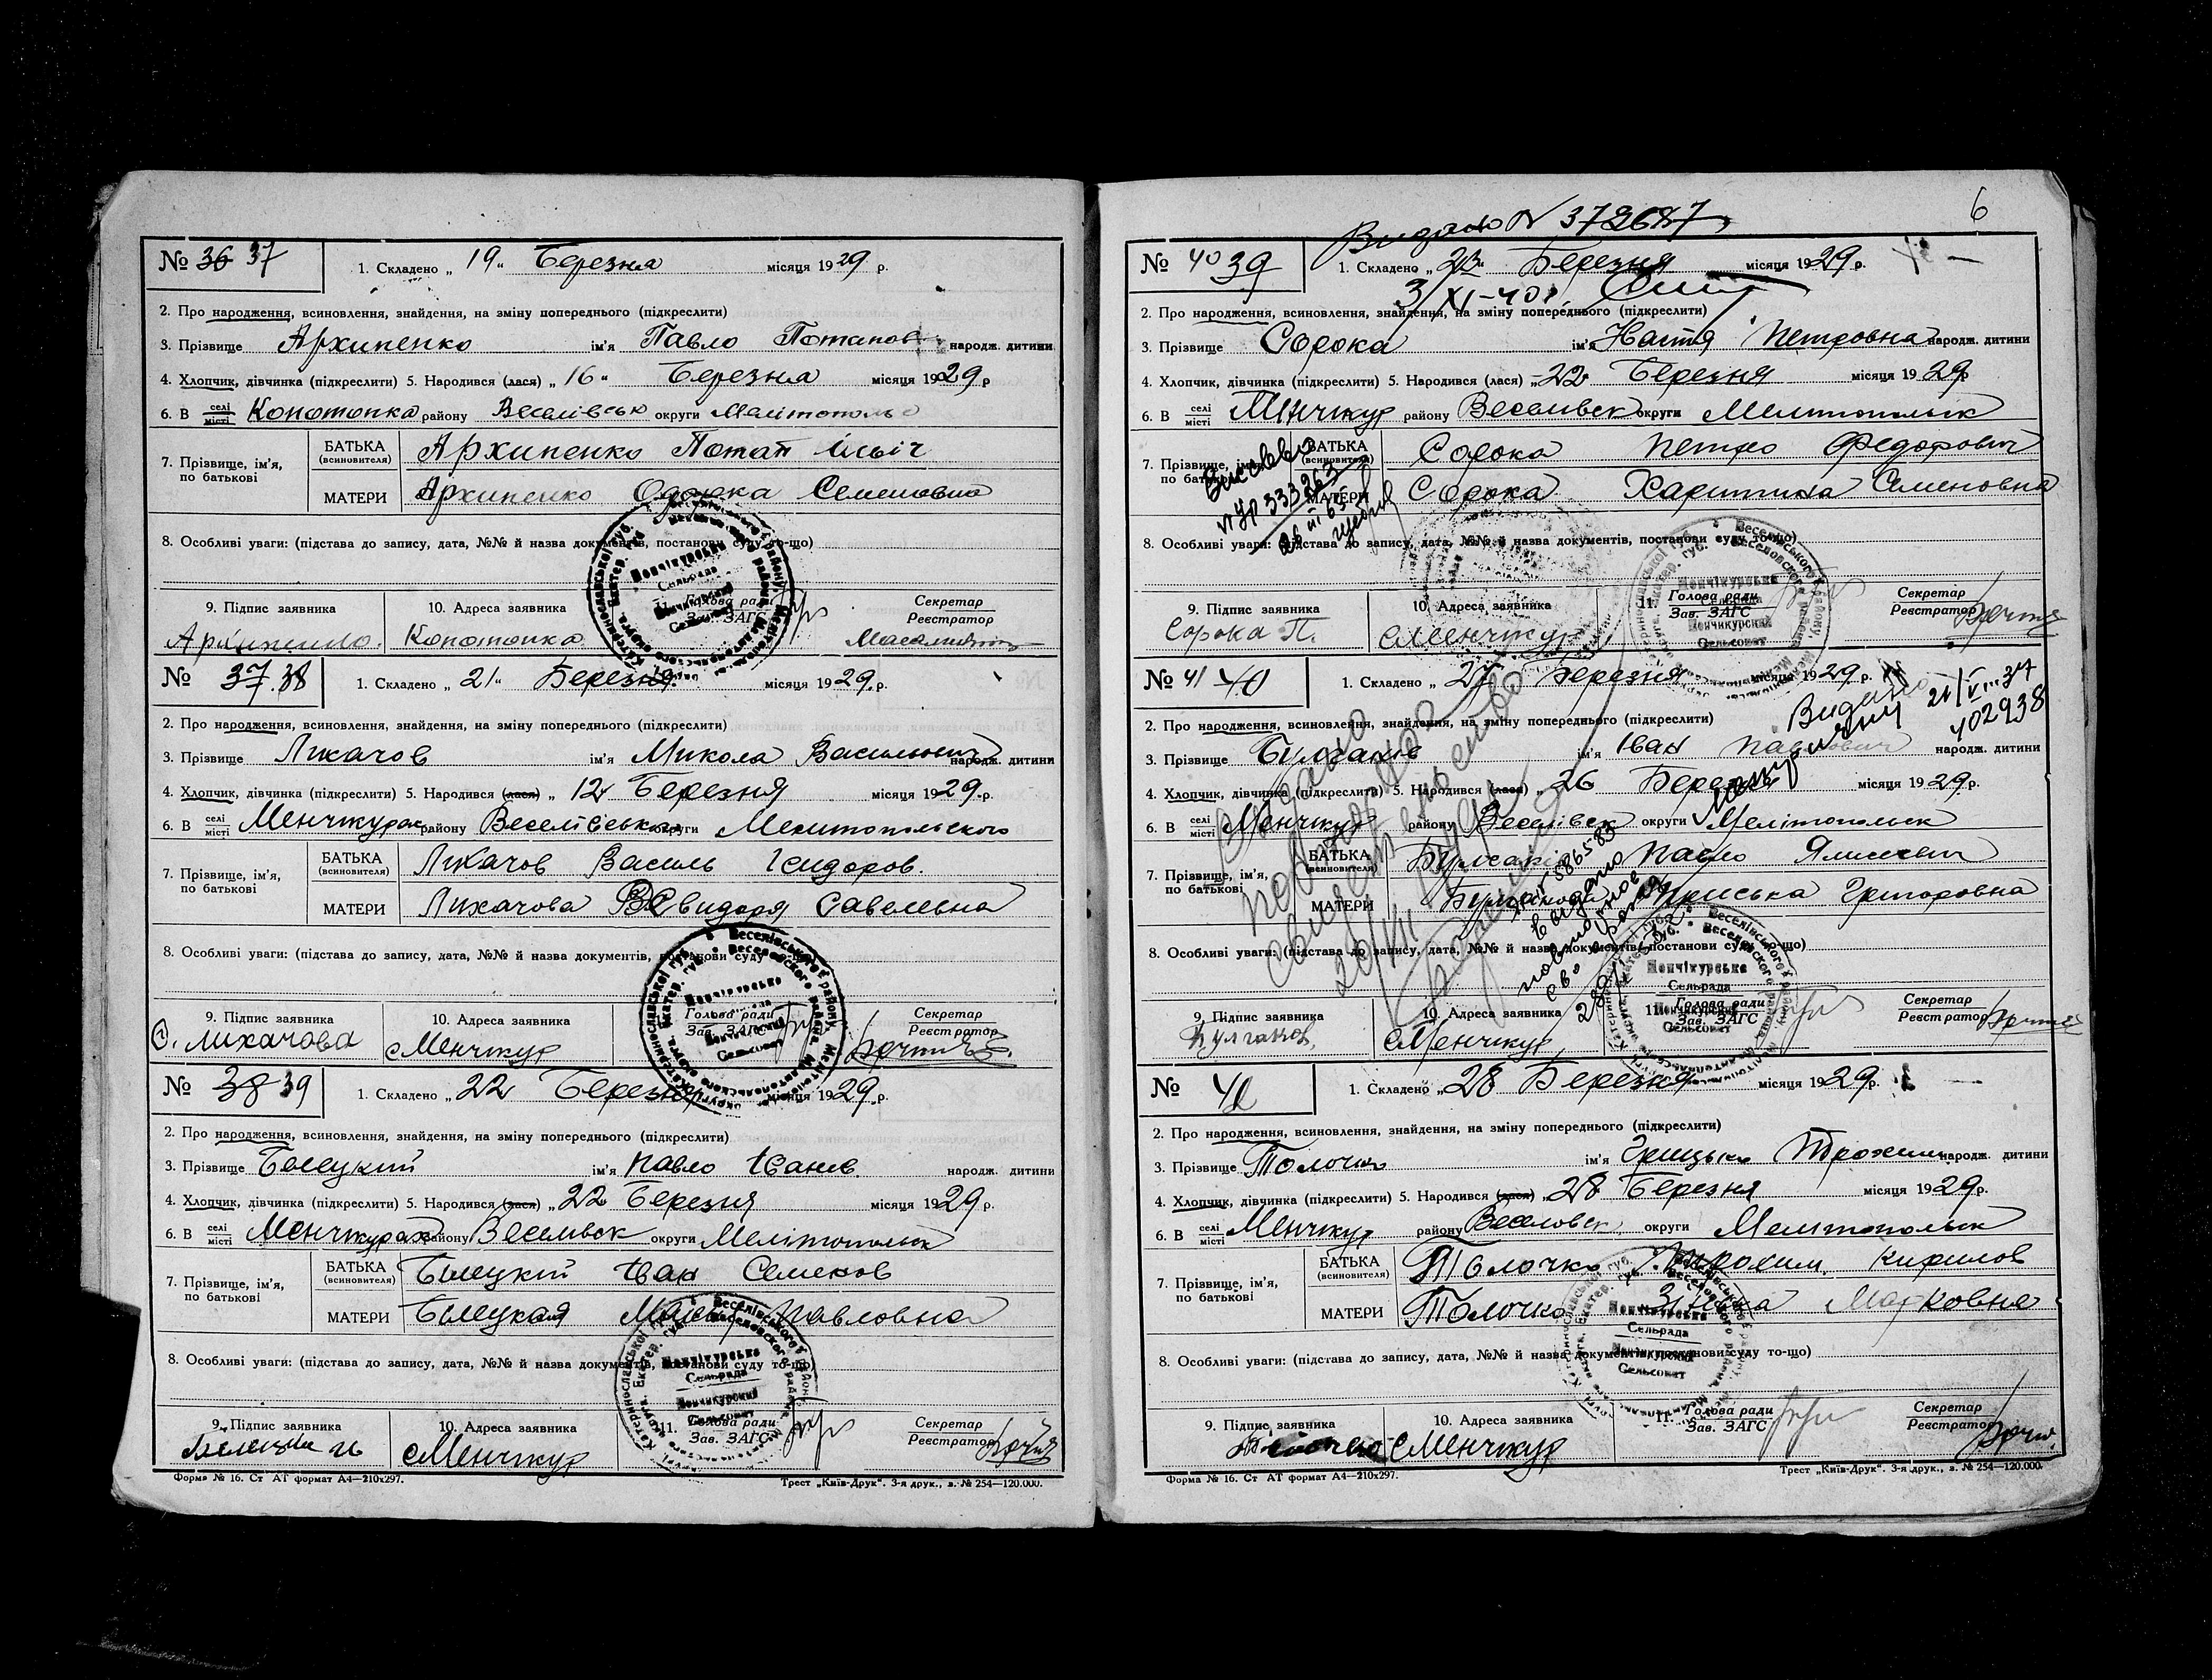 № 36 37
1. Складено „ 19 “ Березня місяця 1929 р.
2. Про народження, всиновлення, знайдення, на зміну попереднього (підкреслити)
3. Прізвище Архипенко ім'я Павло Потапов народж. дитини
4. Хлопчик, дівчинка (підкреслити) 5. Народився (лася) „ 16 “ Березня місяця 1929 р
6. В селі місті Копотопка району Веселівськ округи Мелітопольс
7. Прізвище, ім'я, по батькові
БАТЬКА (всиновителя) Архипенко Потап Ільіч
МАТЕРИ Архипенко Одарка Семеновна
8. Особливі уваги: (підстава до запису, дата, №№ й назва документів, постанови суду то-що)
9. Підпис заявника 10. Адреса заявника 11. Голова ради Зав. ЗАГС Секретар Реєстратор
Архипенко. Копотопка
№ 37 38
1. Складено „ 21 “ Березня місяця 1929 р.
2. Про народження, всиновлення, знайдення, на зміну попереднього (підкреслити)
3. Прізвище Лихачов ім'я Микола Васильович народж. дитини
4. Хлопчик, дівчинка (підкреслити) 5. Народився (лася) „ 12 Березня місяця 1929 р.
6. В селі місті Менчикурах району Веселівська округи Мелитопольского
7. Прізвище, ім'я, по батькові
БАТЬКА (всиновителя) Лихачов Василь Ісидоров.
МАТЕРИ Лихачова Савельевна
8. Особливі уваги: (підстава до запису, дата, №№ й назва документів, постанови суду то-що)
9. Підпис заявника 10. Адреса заявника Голова ради Зав. ЗАГС Секретар Реєстратор
Лихачова с Менчикур
№ 38 39
1. Складено „ 22 Березня місяця 1929 р.
2. Про народження, всиновлення, знайдення, на зміну попереднього (підкреслити)
3. Прізвище Білецкий ім'я Павло Іванів народж. дитини
4. Хлопчик, дівчинка (підкреслити) 5. Народився (лася) „ 22 Березня місяця 1929 р.
6. В селі місті Менчикурах району Веселивск округи Мелітопольск
7. Прізвище, ім'я, по батькові
БАТЬКА (всиновителя) Білецкий Іван Семенов
МАТЕРИ Білецкая Павловна
8. Особливі уваги: (підстава до запису, дата, №№ й назва документів, постанови суду то-що)
9. Підпис заявника 10. Адреса заявника 11. Голова ради Зав. ЗАГС Секретар Реєстратор
с Менчикур
Форма № 16. Ст АТ формат А4—210х297. Трест „Київ-Друк“. 3-я друк., з. № 254—120.000.
6
Видано N 372687
№ 40 39
1. Складено „ 23 “ Березня місяця 1929 р.
3/XI-40р.
2. Про народження, всиновлення, знайдення, на зміну попереднього (підкреслити)
3. Прізвище Сорока ім'я Настя Петровна народж. дитини
4. Хлопчик, дівчинка (підкреслити) 5. Народився (лася) „ 22 Березня місяця 1929 р
6. В селі місті Менчикур району Веселивск округи Мелитопольск
7. Прізвище, ім'я, по батькові
БАТЬКА (всиновителя) Сорока Петро Федорович
МАТЕРИ Сорока Харитина Семеновна
333263
8. Особливі уваги: (підстава до запису, дата, №№ й назва документів, постанови суду то-що)
9. Підпис заявника 10. Адреса заявника 11. Голова ради Зав. ЗАГС Секретар Реєстратор
Сорока П. с Менчикур
№ 41 40
1. Складено „ 27 Березня місяця 1929 р.
Видано 21/VIII 37
402938
2. Про народження, всиновлення, знайдення, на зміну попереднього (підкреслити)
3. Прізвище Булгаків ім'я Іван Павлович народж. дитини
4. Хлопчик, дівчинка (підкреслити) 5. Народився (лася) „ 26 Березня місяця 1929 р.
6. В селі місті Менчикур району Веселівск округи Мелітопольск
7. Прізвище, ім'я, по батькові
БАТЬКА (всиновителя) Булгаків Павло
МАТЕРИ Приська Григоровна
Видано повторное свидетельство
5865783
выдано повторное
8. Особливі уваги: (підстава до запису, дата, №№ й назва документів, постанови суду то-що)
9. Підпис заявника 10. Адреса заявника 11. Голова ради Зав. ЗАГС Секретар Реєстратор
Булгаков с Менчикур
№ 41
1. Складено „ 28 Березня місяця 1929 р.
2. Про народження, всиновлення, знайдення, на зміну попереднього (підкреслити)
3. Прізвище Толочко ім'я Грицько Трохим народж. дитини
4. Хлопчик, дівчинка (підкреслити) 5. Народився (лася) „ 28 Березня місяця 1929 р.
6. В селі місті Менчикур району Веселовск округи Мелітопольск
7. Прізвище, ім'я, по батькові
БАТЬКА (всиновителя) Толочко Трохим Кирилов
МАТЕРИ Толочко Зінька Марковна
8. Особливі уваги: (підстава до запису, дата, №№ й назва документів, постанови суду то-що)
9. Підпис заявника 10. Адреса заявника 11. Голова ради Зав. ЗАГС Секретар Реєстратор
с Менчикур
Форма № 16. Ст АТ формат А4—210х297. Трест „Київ-Друк“. 3-я друк., з. № 254—120.000.